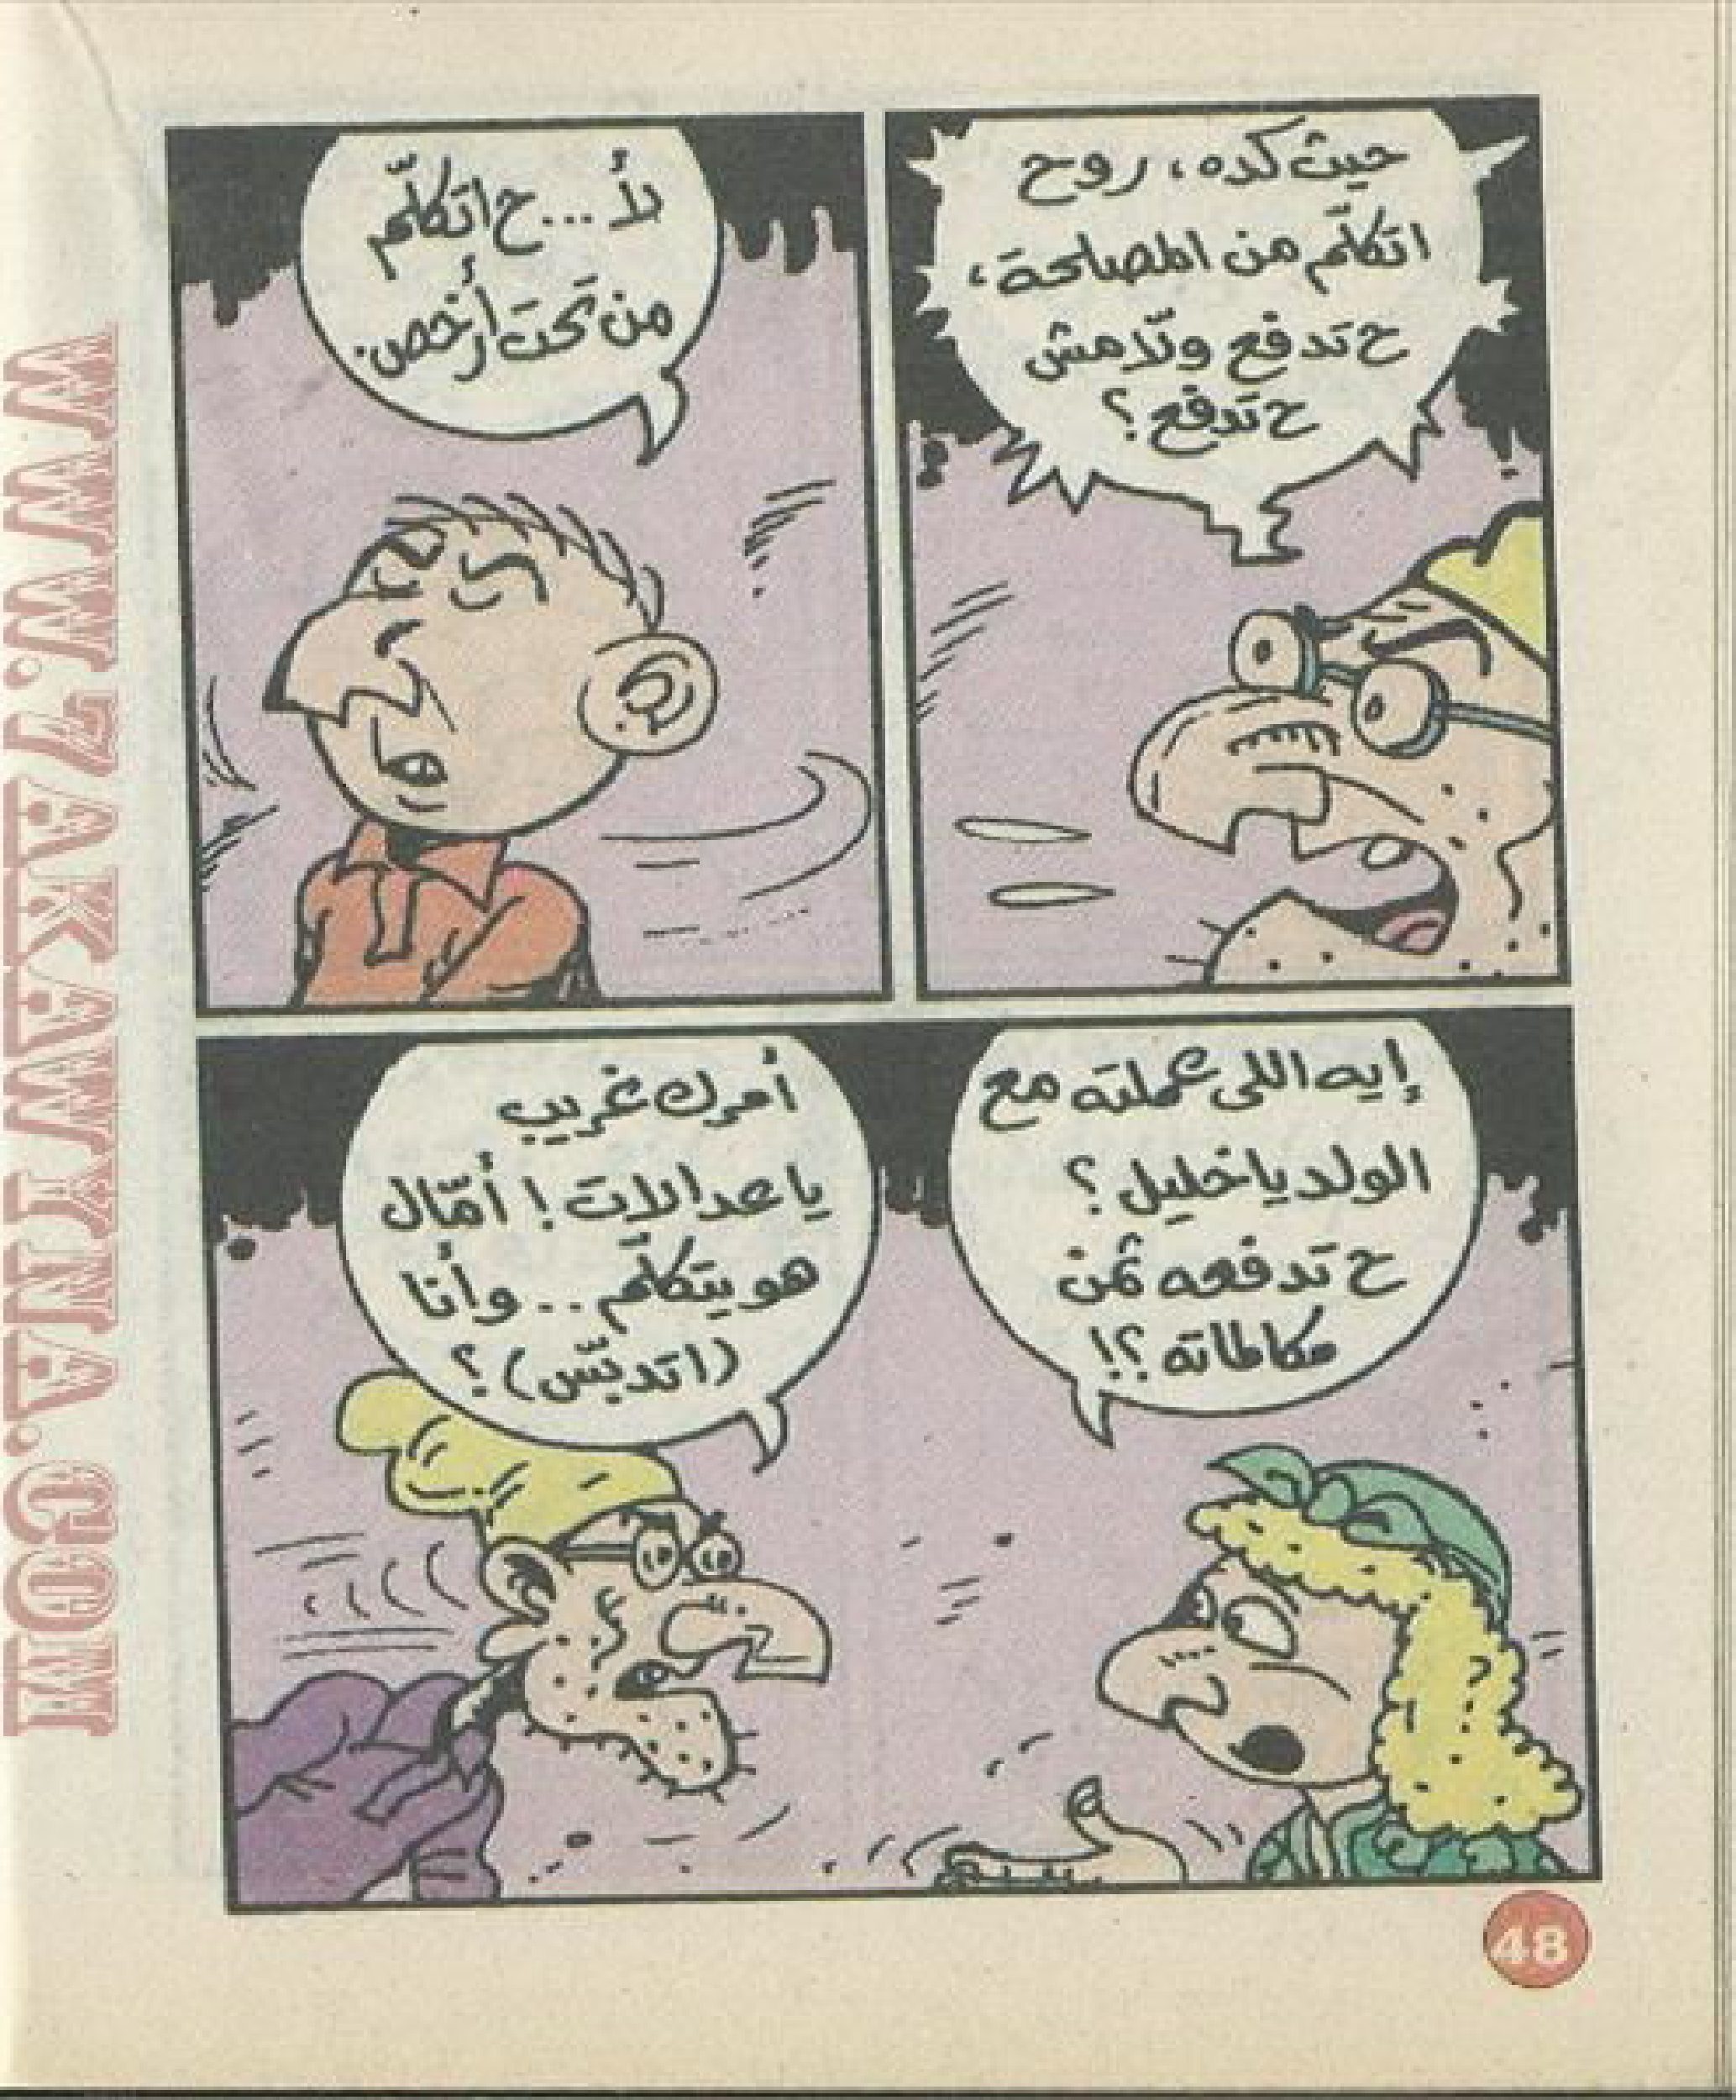 حيث كده، روح
اتكلّم من المصلحة،
ح تدفع ولّا مش
ح تدفع؟
لأ... ح اتكلّم
من تحت أرخص.
إيه اللى عملته مع
الولد يا خليل؟
ح تدفعه ثمن
مكالماته؟!
أمرك غريب
يا عدالات! أمّال
هو يتكلّم.. وأنا
(اتدبّس)؟
WWW.7AKAWYNA.COM
48